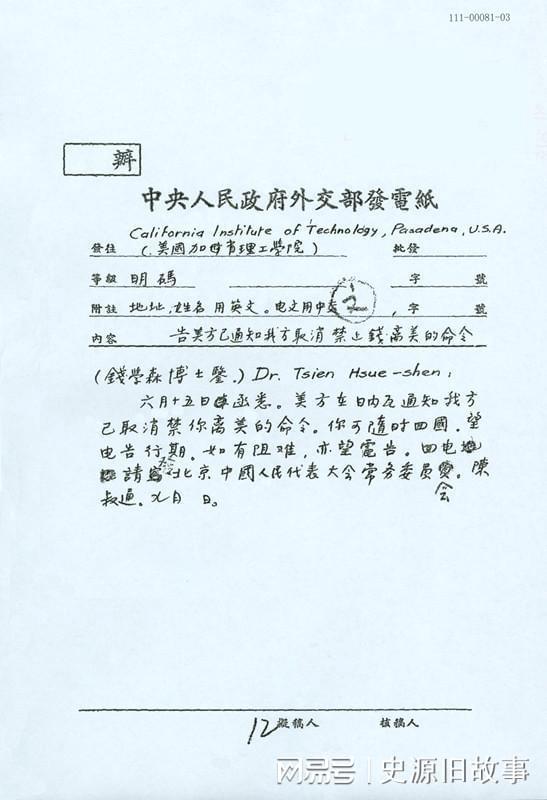 111-00081-03
辦
中央人民政府外交部發電紙
California Institute of Technology, Pasadena, U.S.A.
發往 (美國加州理工學院) 批發
等級 明碼 字 號
附註 地址,姓名用英文。电文用中文 , 字 號
1/2
內容 告美方已通知我方取消禁止錢离美的命令
(錢學森博士鑒.) Dr. Tsien Hsue-shen:
六月十五日函悉。美方在日內瓦通知我方
已取消禁你离美的命令。你可隨时回國。望
电告行期。如有阻难,亦望電告。回电
請 北京中國人民代表大会常务委員
会 陳
叔通。九月 日。
12 擬稿人 核稿人
网易号 | 史源旧故事